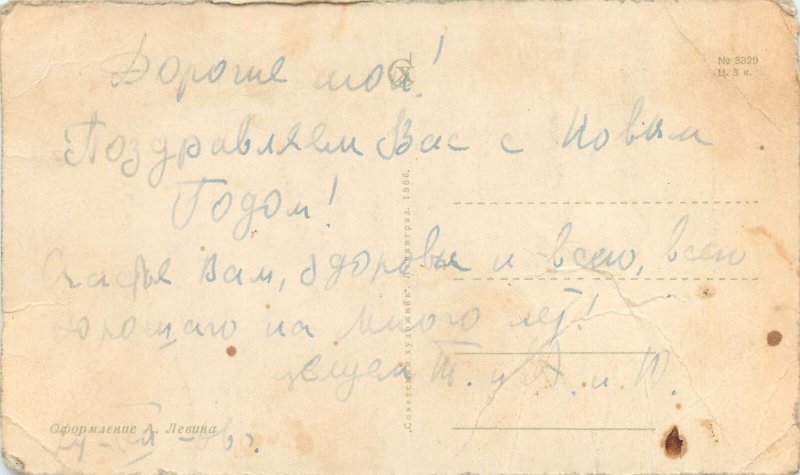 Дорогие мои!
№ 3329
Ц. 3 к.
Поздравляем Вас с Новым
Годом!
Счастья Вам, здоровья и всего, всего
хорошаго на много лет!
целуем Т. и А. и
Оформление А. Левина
„Советский художник". Ленинград. 1966.